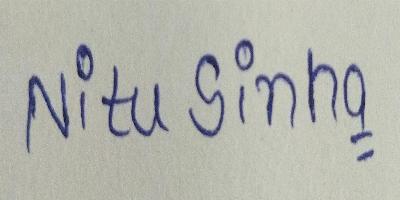 Nitu Sinha